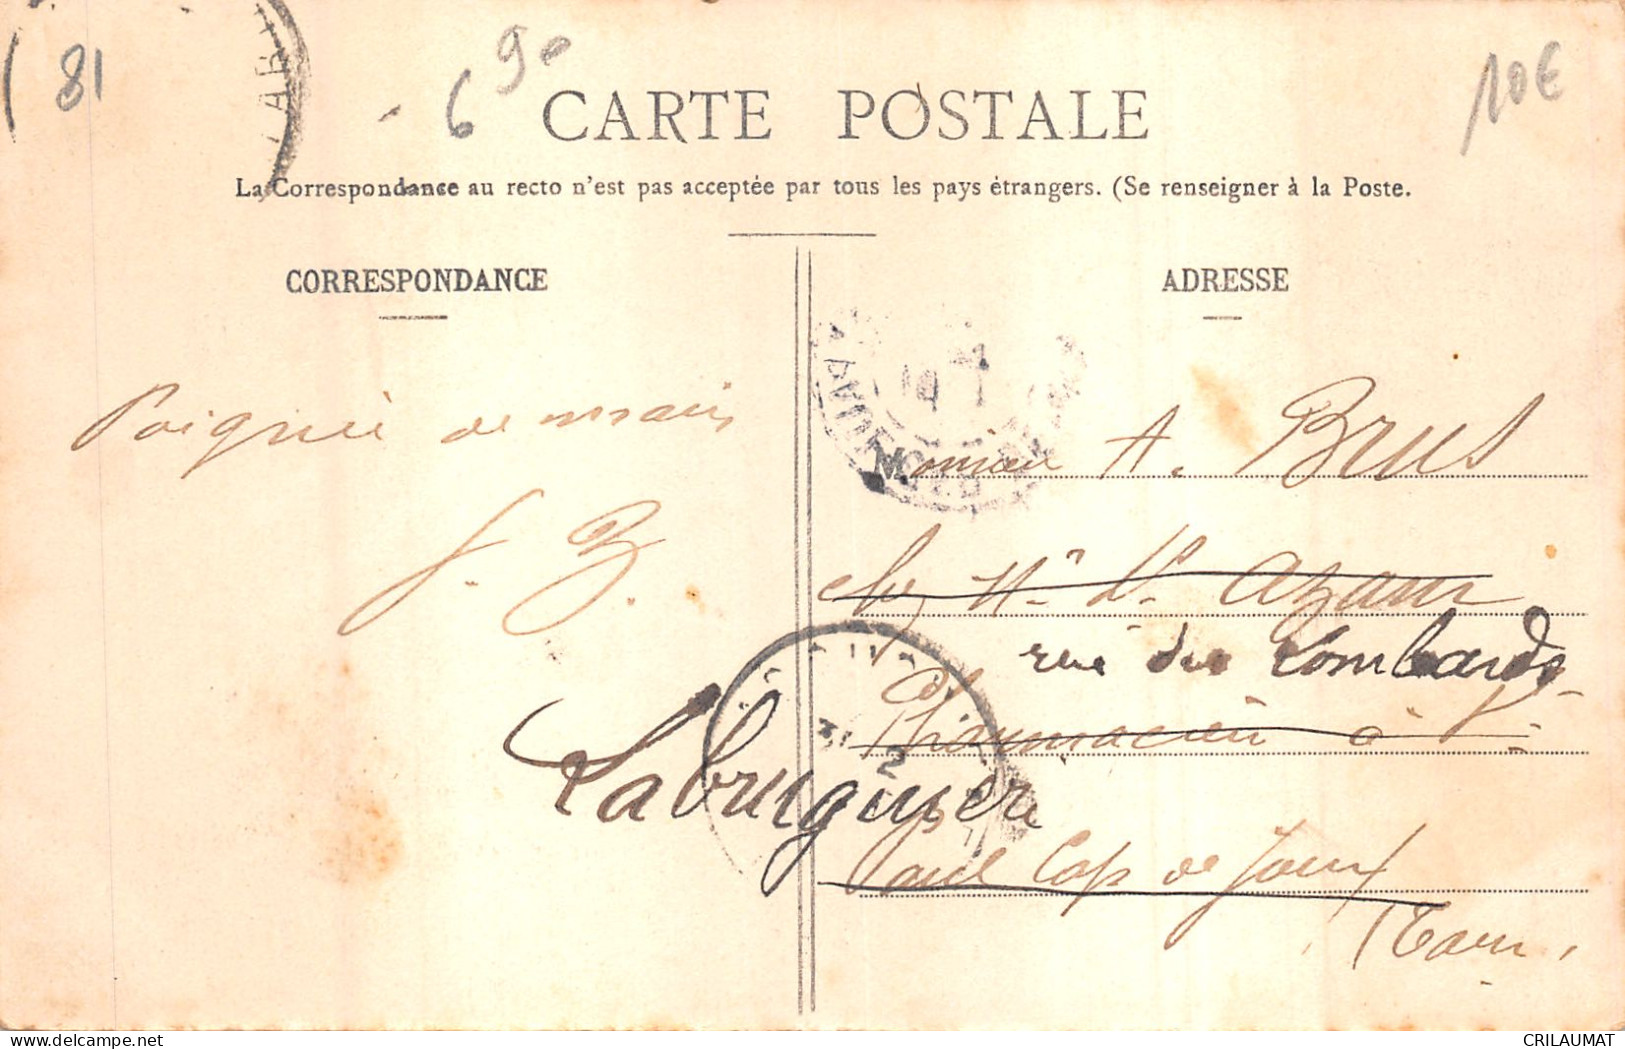 81
6 90
10€
CARTE POSTALE
La Correspondance au recto n'est pas acceptée par tous les pays étrangers. (Se renseigner à la Poste.
CORRESPONDANCE
ADRESSE
Poignée de main
J. B.
Monsieur A. Brus
chez Mr. L. Azam
rue des Lombards
Pharmacien à St.
Labruguière
Paul Cap de Joux
(Tarn
CRILAUMAT